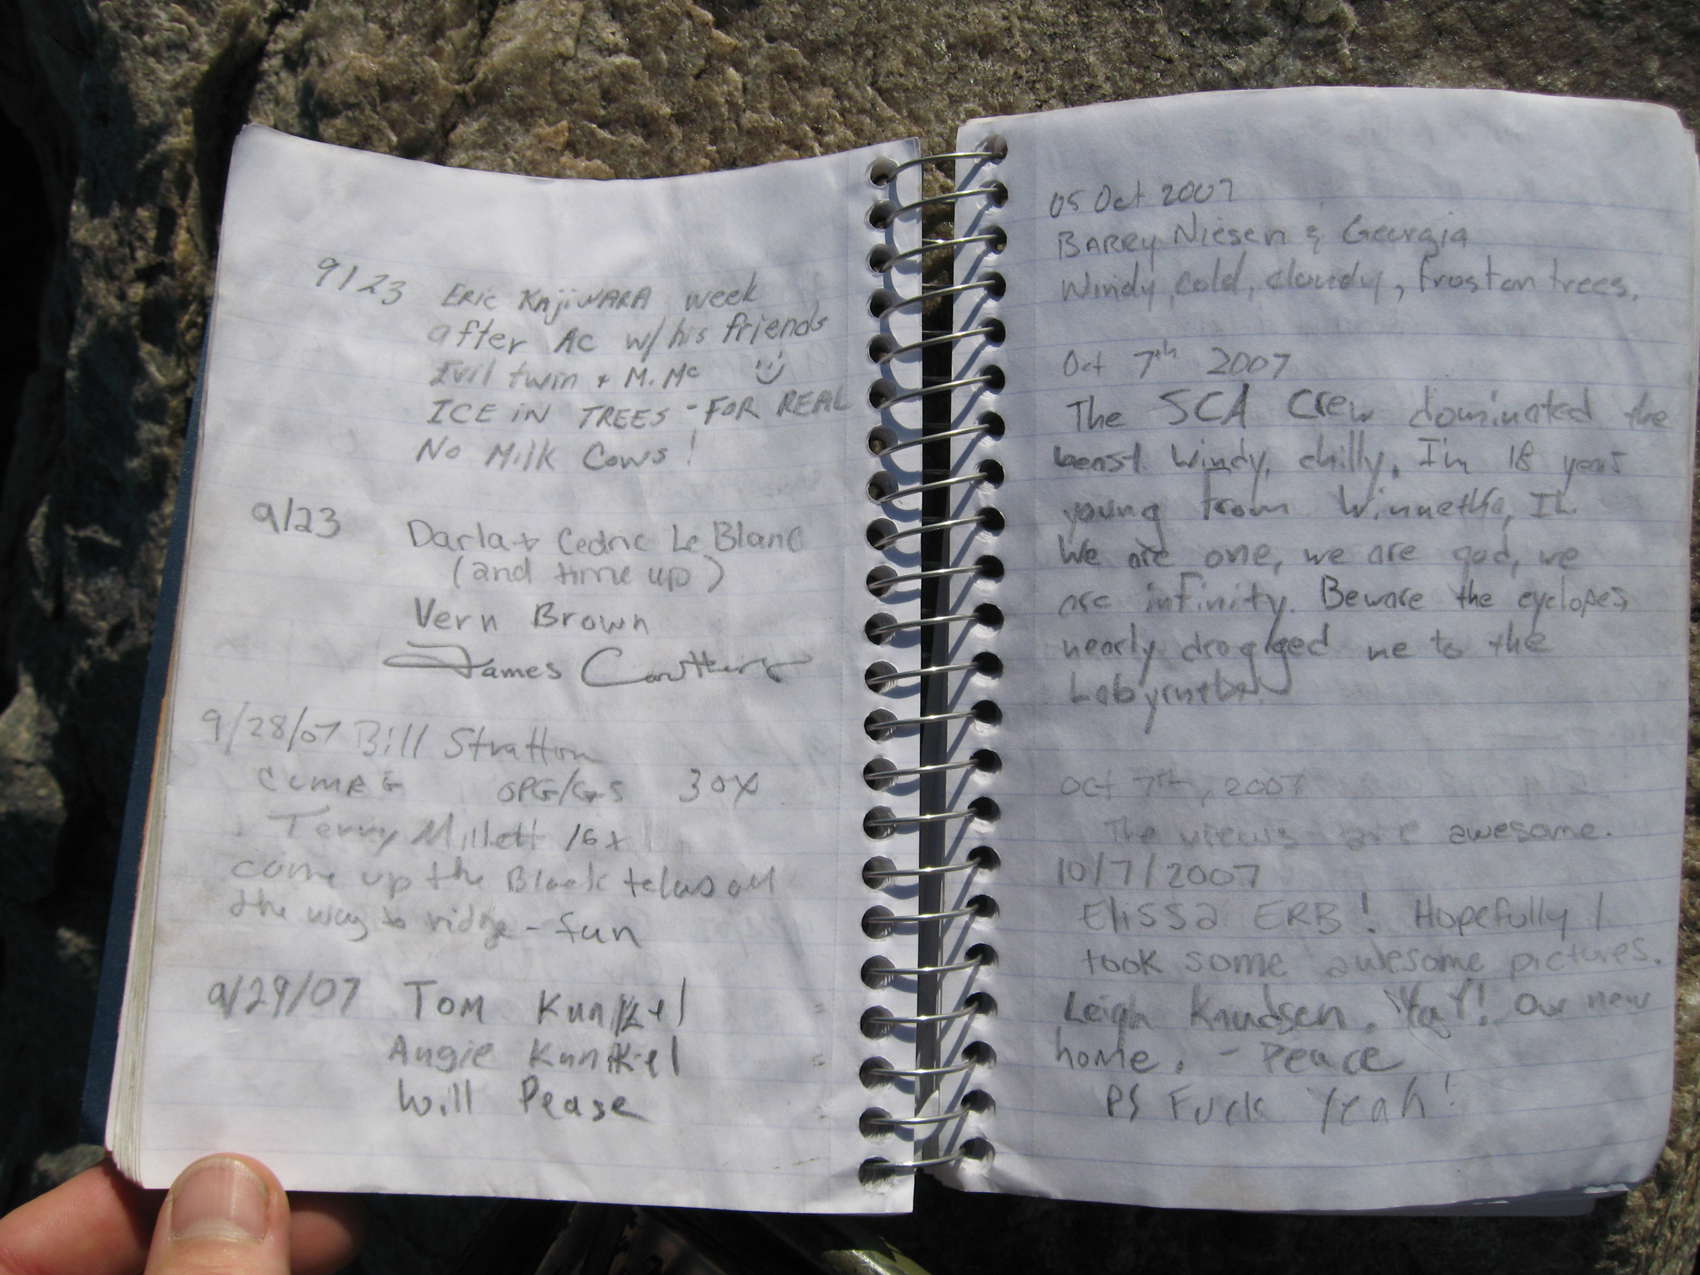 9/23 Eric Kajiwara week
after AC w/ his friends
Evil twin + M. Mc
ICE IN TREES - FOR REAL
No Milk Cows!
9/23 Darla + Cedric Le Blanc
(and time up)
Vern Brown
James
9/28/07 Bill Stratton
30X
Terry Millett 16x
come up the Black
the way to ridge - fun
9/29/07 Tom Kunkel
Angie Kunkel
Will Pease
05 Oct 2007
BARRY Niesen & Georgia
Windy, cold, cloudy, frost on trees.
Oct 7th 2007
The SCA Crew dominated the
beast. Windy, chilly. I'm 18 years
young from Winnetka, IL.
We are one, we are god, we
are infinity. Beware the cyclopes
nearly dragged me to the
Labyrinth.
Oct 7th, 2007
The views are awesome.
10/7/2007
Elissa ERB! Hopefully I
took some awesome pictures.
Leigh Knudsen. Yay! Our new
home. - Peace
PS Fuck Yeah!